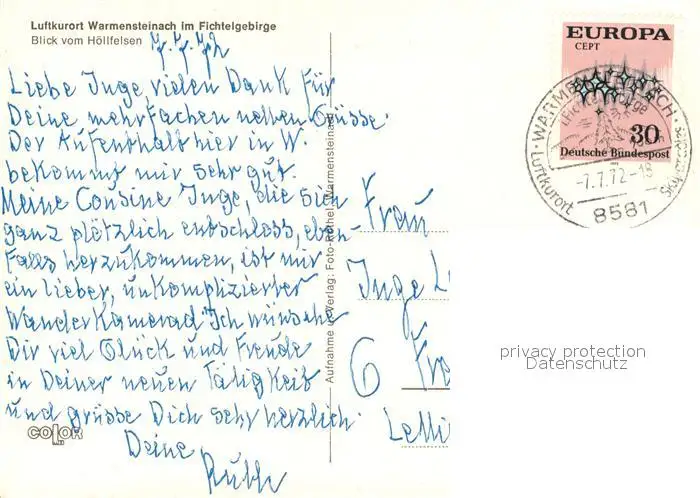 Luftkurort Warmensteinach im Fichtelgebirge
Blick vom Höllfelsen
7.7.72
Liebe Inge vielen Dank für
Deine mehrfachen netten Grüsse.
Der Aufenthalt hier in W.
bekommt mir sehr gut.
Meine Cousine Inge, die sich
ganz plötzlich entschloss, eben-
falls herzukommen, ist mir
ein lieber, unkomplizierter
Wanderkamerad Ich wünsche
Dir viel Glück und Freude
in Deiner neuen Tätigkeit
und grüsse Dich sehr herzlich
Deine
Ruth
COLOR
Aufnahme u. Verlag: Foto-Röthel, Warmensteinach
EUROPA
CEPT
30
Deutsche Bundespost
WARMENSTEINACH
Luftkurort
7.7.72-18
8581
Frau
Inge L
6 Fra
privacy protection
Datenschutz